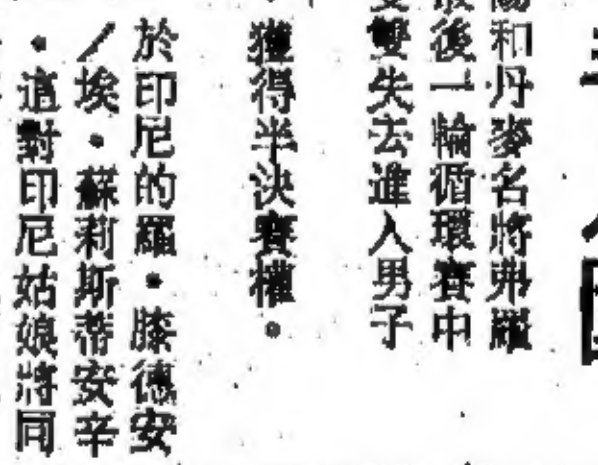 和丹麥名將弗羅
最後一輪循環賽中
雙雙失去進入男子
獲得半決賽權。
於印尼的羅·膝德安
／埃·蘇莉斯蒂安辛
·這對印尼姑娘將同